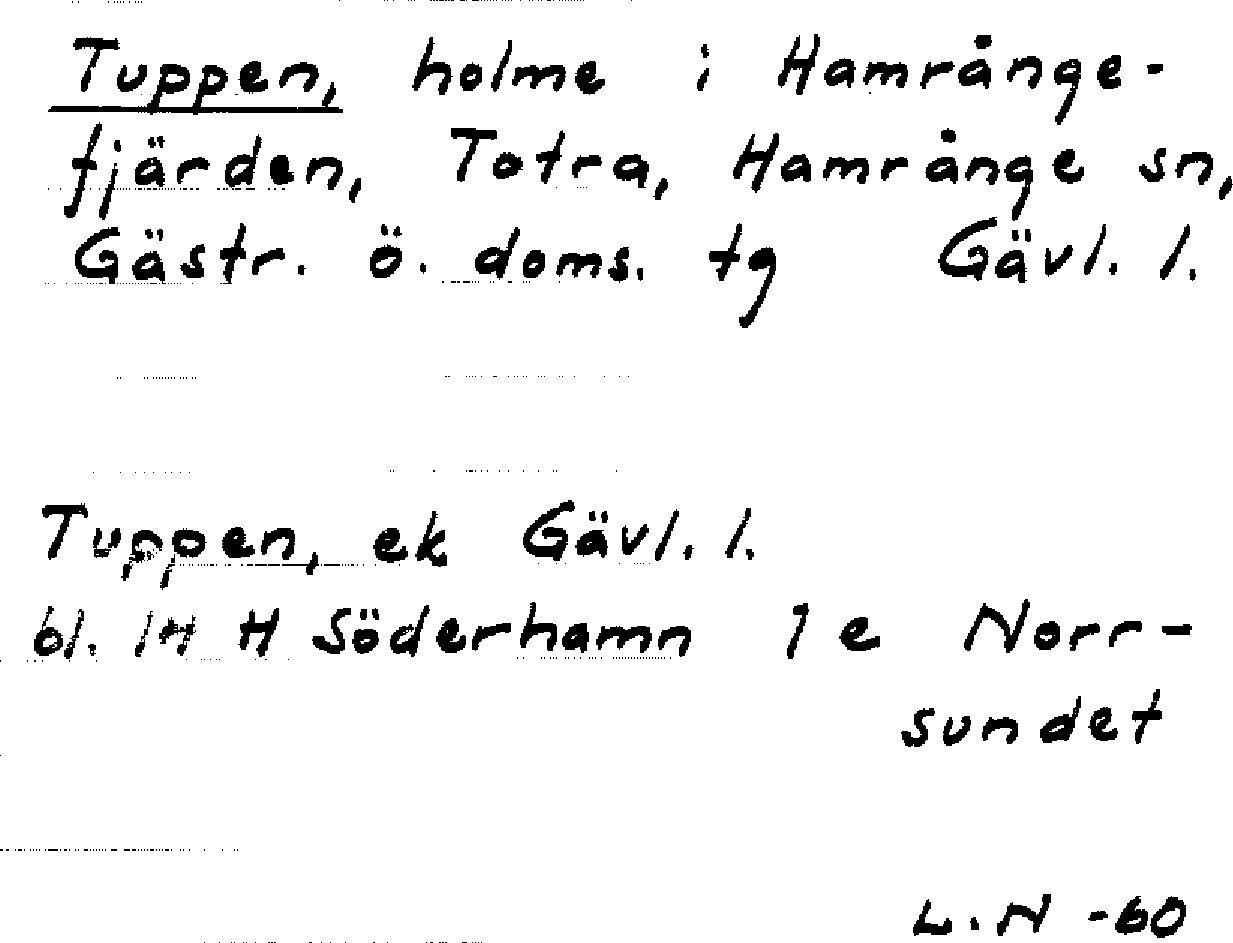 Tuppen, holme i Hamrånge-
fjärden, Totra, Hamrånge sn,
Gästr. ö. doms. tg Gävl. l.
Tuppen, ek Gävl. l.
bl. 14 H Söderhamn 1 e Norr-
sundet
L.N -60